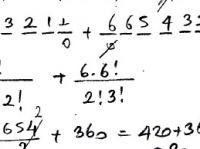 3 2 1 1 + 6 6 5 4 3
0 6
! + 6.6!
2! 2!3!
654 2 + 360 = 420+36